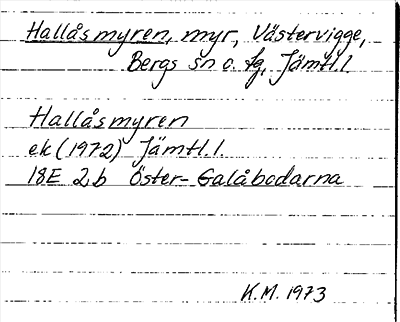 Hallåsmyren, myr, Västervigge,
Bergs sn o. tg, Jämtl.l.
Hallåsmyren
ek (1972) Jämtl.l.
18E 2b Öster-Galåbodarna
K.M. 1973